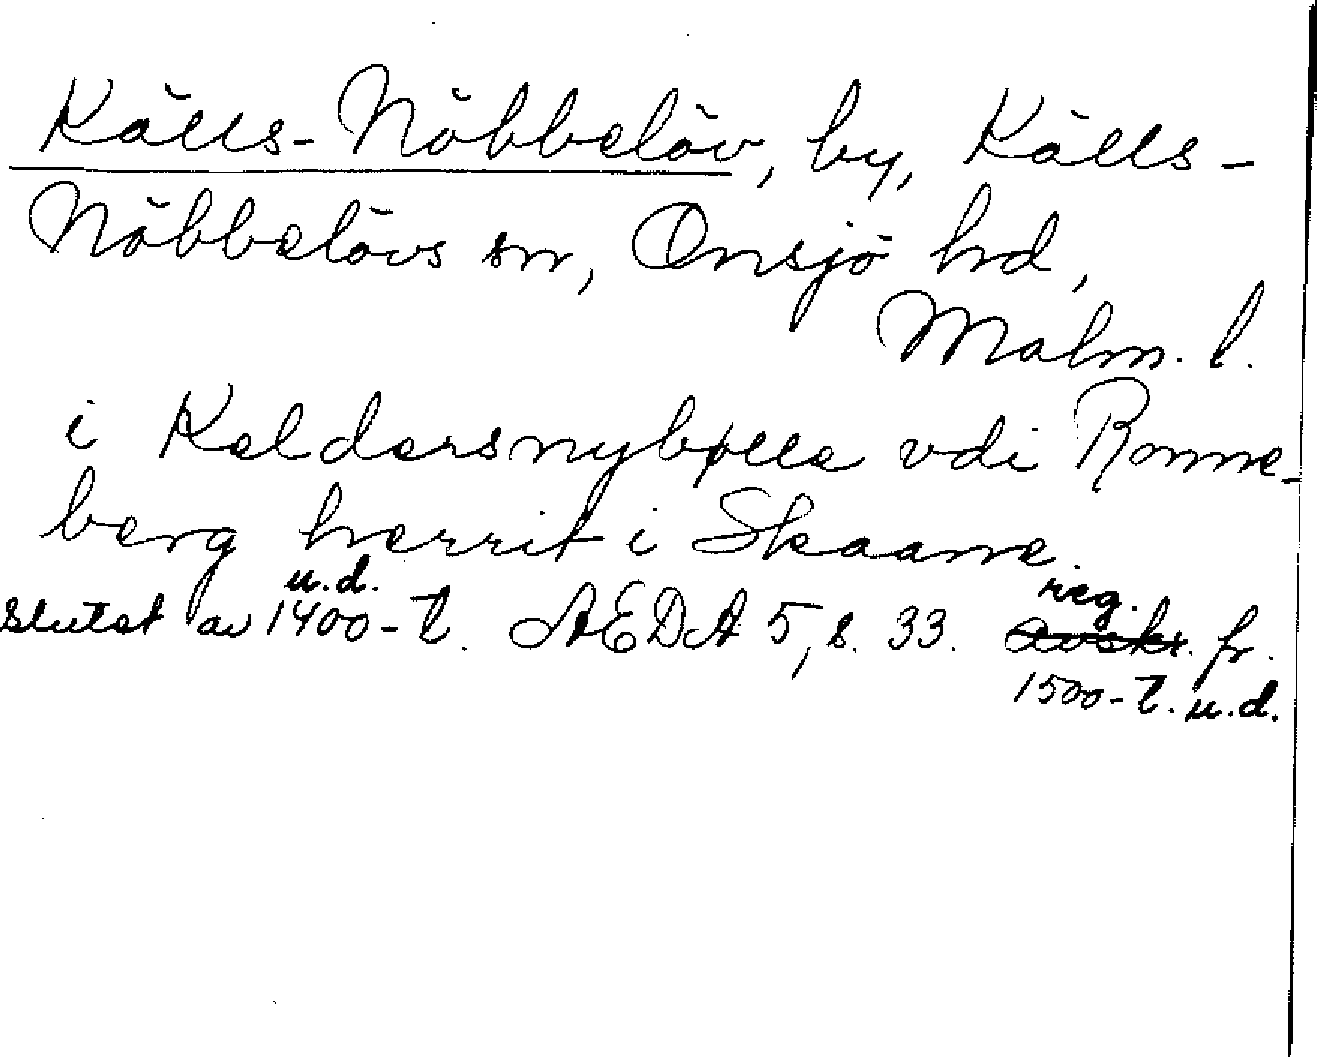 Källs-Nöbbelöv, by, Källs-
Nöbbelövs sn, Onsjö hd,
Malm. l.
i Keldersnybølle vdi Ronne-
berg herrit i Skaane.
u.d. reg.
Slutet av 1400-t. AEDA 5, s. 33. avskr. fr.
1500-t. u.d.